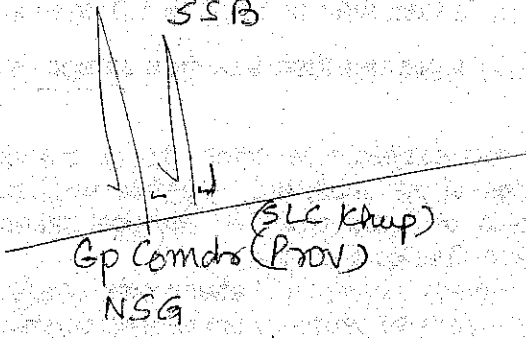 SSB
(SLC Khup)
Gp Comdr (Prov)
NSG